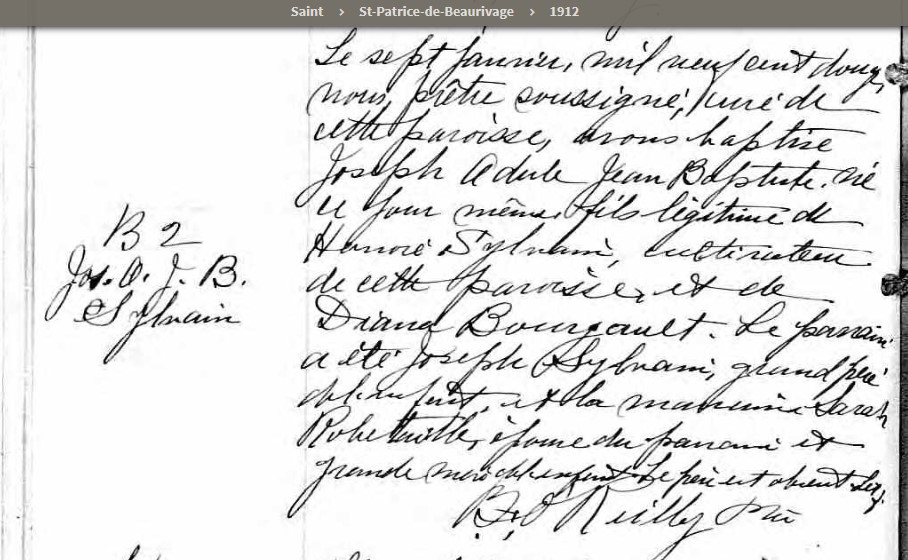 Saint › St-Patrice-de-Beaurivage › 1912
Le sept janvier, mil neuf cent douze,
nous, prêtre soussigné, curé de
cette paroisse, avons baptisé
Joseph Adule Jean Baptiste, né
ce jour même, fils légitime de
Honoré Sylvain, cultivateur
de cette paroisse, et de
Diana Bourgault. Le parrain
a été Joseph Sylvain, grand père
de l'enfant, et la marraine Sarah
Robitaille, épouse du parrain et
grande mère de l'enfant. Le père est absent
B. O'Reilly Ptre
B 2
Jos. A. J. B.
Sylvain